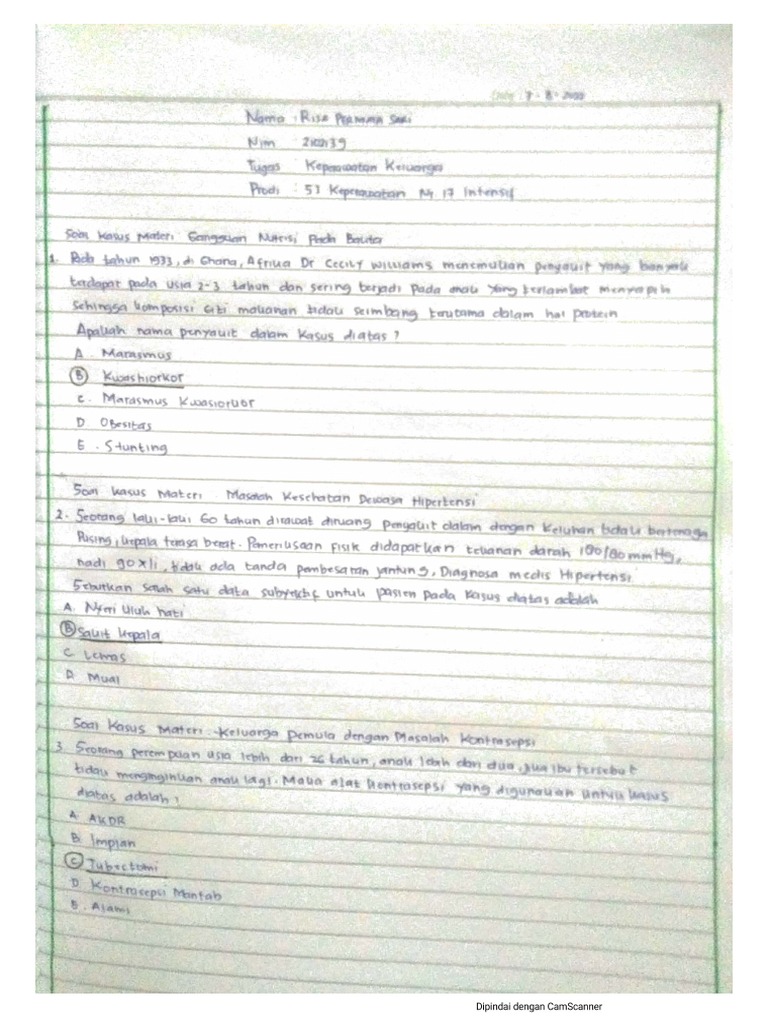 Date : 7 - 8 - 2022
Nama : Risa Permata Sari
Nim : 2102139
Tugas : Keperawatan Keluarga
Prodi : S1 Keperawatan Ng. 17 Intensif
Soal Kasus Materi Gangguan Nutrisi Pada Balita
1. Pada tahun 1933, di Ghana, Afrika Dr Cecily Williams menemukan penyakit yang banyak
terdapat pada usia 2-3 tahun dan sering terjadi pada anak yang terlambat menyapih
sehingga komposisi gizi makanan tidak seimbang terutama dalam hal protein
Apakah nama penyakit dalam kasus diatas ?
A. Marasmus
B Kwashiorkor
C. Marasmus Kwasiorkor
D Obesitas
E . Stunting
Soal kasus Materi Masalah Kesehatan Dewasa Hipertensi
2. Seorang laki-laki 60 tahun dirawat diruang penyakit dalam dengan keluhan tidak bertenaga
Pusing, kepala terasa berat. Pemeriksaan fisik didapatkan tekanan darah 180/80 mmHg,
nadi 90 x/i, tidak ada tanda pembesaran jantung, Diagnosa medis Hipertensi
Sebutkan salah satu data subyektif untuk pasien pada kasus diatas adalah
A. Nyeri Uluh hati
B Sakit kepala
C Lemas
D. Mual
Soal Kasus Materi Keluarga Pemula dengan Masalah Kontrasepsi
3. Seorang perempuan usia lebih dari 26 tahun, anak lebih dari dua, jika ibu tersebut
tidak menginginkan anak lagi. Maka alat kontrasepsi yang digunakan untuk kasus
diatas adalah ?
A. AKDR
B. Implan
C Tubectomi
D. Kontrasepsi Mantab
E. Alami
Dipindai dengan CamScanner